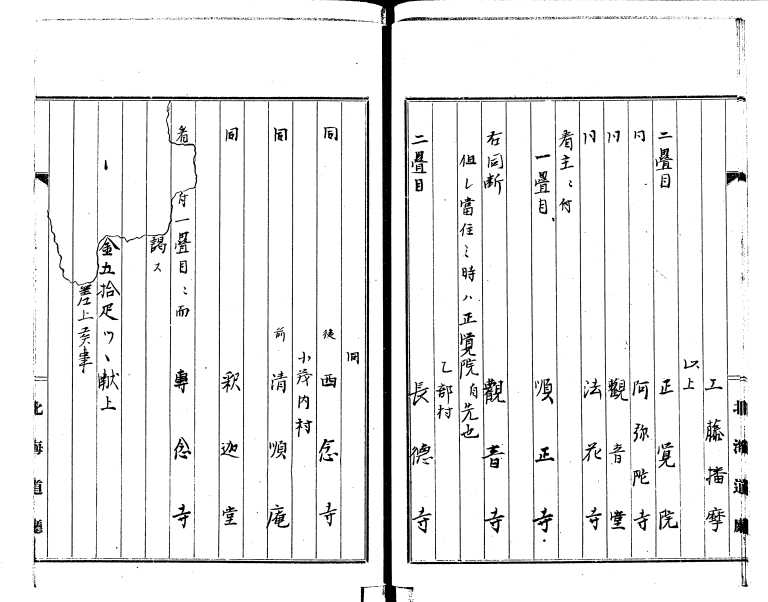 工藤播摩
以上
二畳目 正覚院
同 阿弥陀寺
同 觀音堂
同 法花寺
着主ニ付
一畳目 順正寺
右同断 觀音寺
但し當住ミ時ハ正覚院自先也
乙部村
二畳目 長德寺
北海道廳
同
同 後 西念寺
小茂内村
同 前 清順庵
同 釈迦堂
着 付一畳目ニ而 專念寺
謁ス
金五拾疋ツヽ献上
差上亥年
北海道廳